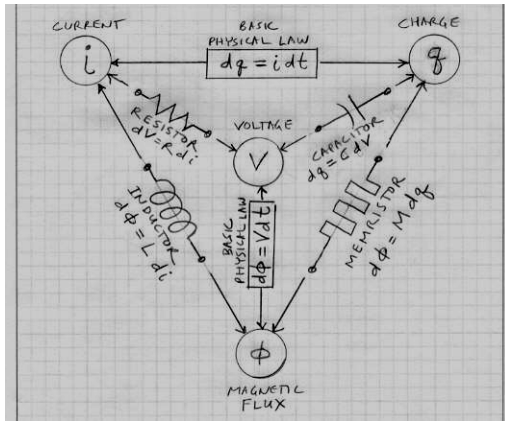 CURRENT
BASIC
PHYSICAL LAW
CHARGE
i
dq = i dt
q
RESISTOR
dV = R di
VOLTAGE
V
CAPACITOR
dq = C dV
INDUCTOR
dϕ = L di
BASIC
PHYSICAL LAW
dϕ = V dt
MEMRISTOR
dϕ = M dq
ϕ
MAGNETIC
FLUX